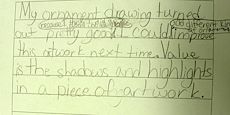 My ornament drawing turned
out pretty good I could improve
this artwork next time. Value
is the shadows and highlights
in a piece of artwork.